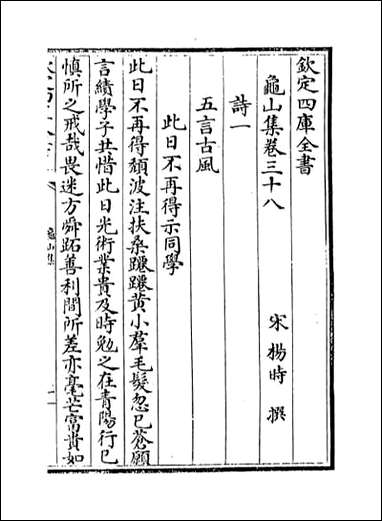 欽定四庫全書
龜山集卷三十八
宋 楊時 撰
詩一
五言古風
此日不再得示同學
此日不再得頽波注扶桑躚躚黃小羣毛髮忽已蒼願
言績學子共惜此日光術業貴及時勉之在青陽行己
慎所之戒哉畏迷方舜跖善利間所差亦毫芒富貴如
龜山集